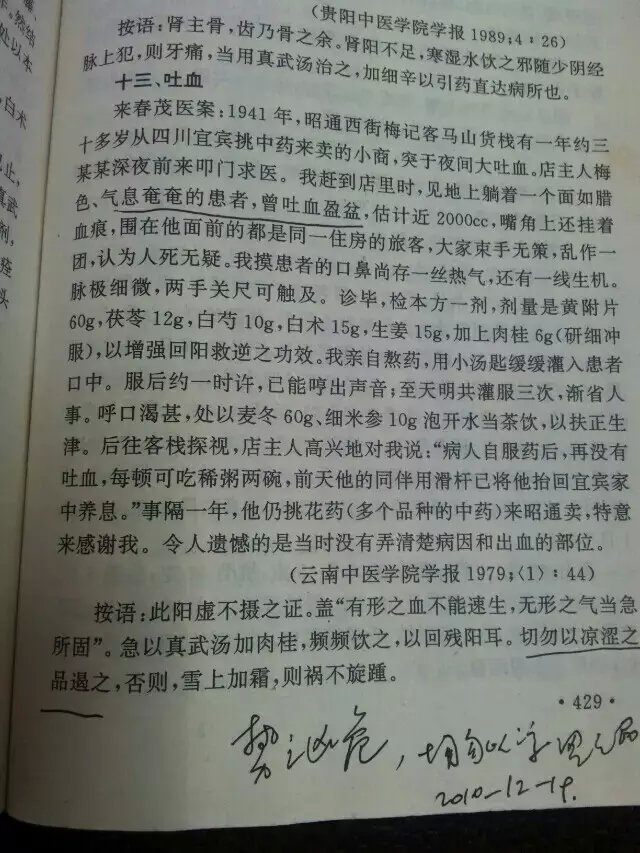 (贵阳中医学院学报 1989;4:26)
按语:肾主骨,齿乃骨之余。肾阳不足,寒湿水饮之邪随少阴经
脉上犯,则牙痛,当用真武汤治之,加细辛以引药直达病所也。
十三、吐血
来春茂医案:1941年,昭通西街梅记客马山货栈有一年约三
十多岁从四川宜宾挑中药来卖的小商,突于夜间大吐血。店主人梅
某某深夜前来叩门求医。我赶到店里时,见地上躺着一个面如腊
色、气息奄奄的患者,曾吐血盈盆,估计近2000cc,嘴角上还挂着
血痕,围在他面前的都是同一住房的旅客,大家束手无策,乱作一
团,认为人死无疑。我摸患者的口鼻尚存一丝热气,还有一线生机。
脉极细微,两手关尺可触及。诊毕,检本方一剂,剂量是黄附片
60g,茯苓12g,白芍10g,白术15g,生姜15g,加上肉桂6g(研细冲
服),以增强回阳救逆之功效。我亲自熬药,用小汤匙缓缓灌入患者
口中。服后约一时许,已能哼出声音;至天明共灌服三次,渐省人
事。呼口渴甚,处以麦冬60g、细米参10g泡开水当茶饮,以扶正生
津。后往客栈探视,店主人高兴地对我说:“病人自服药后,再没有
吐血,每顿可吃稀粥两碗,前天他的同伴用滑杆已将他抬回宜宾家
中养息。”事隔一年,他仍挑花药(多个品种的中药)来昭通卖,特意
来感谢我。令人遗憾的是当时没有弄清楚病因和出血的部位。
(云南中医学院学报 1979;〈1〉:44)
按语:此阳虚不摄之证。盖“有形之血不能速生,无形之气当急
所固”。急以真武汤加肉桂,频频饮之,以回残阳耳。切勿以凉涩之
品遏之,否则,雪上加霜,则祸不旋踵。
·429·
势之凶危,切勿以
2010-12-19.
处以本
白术
真武
剂,
头